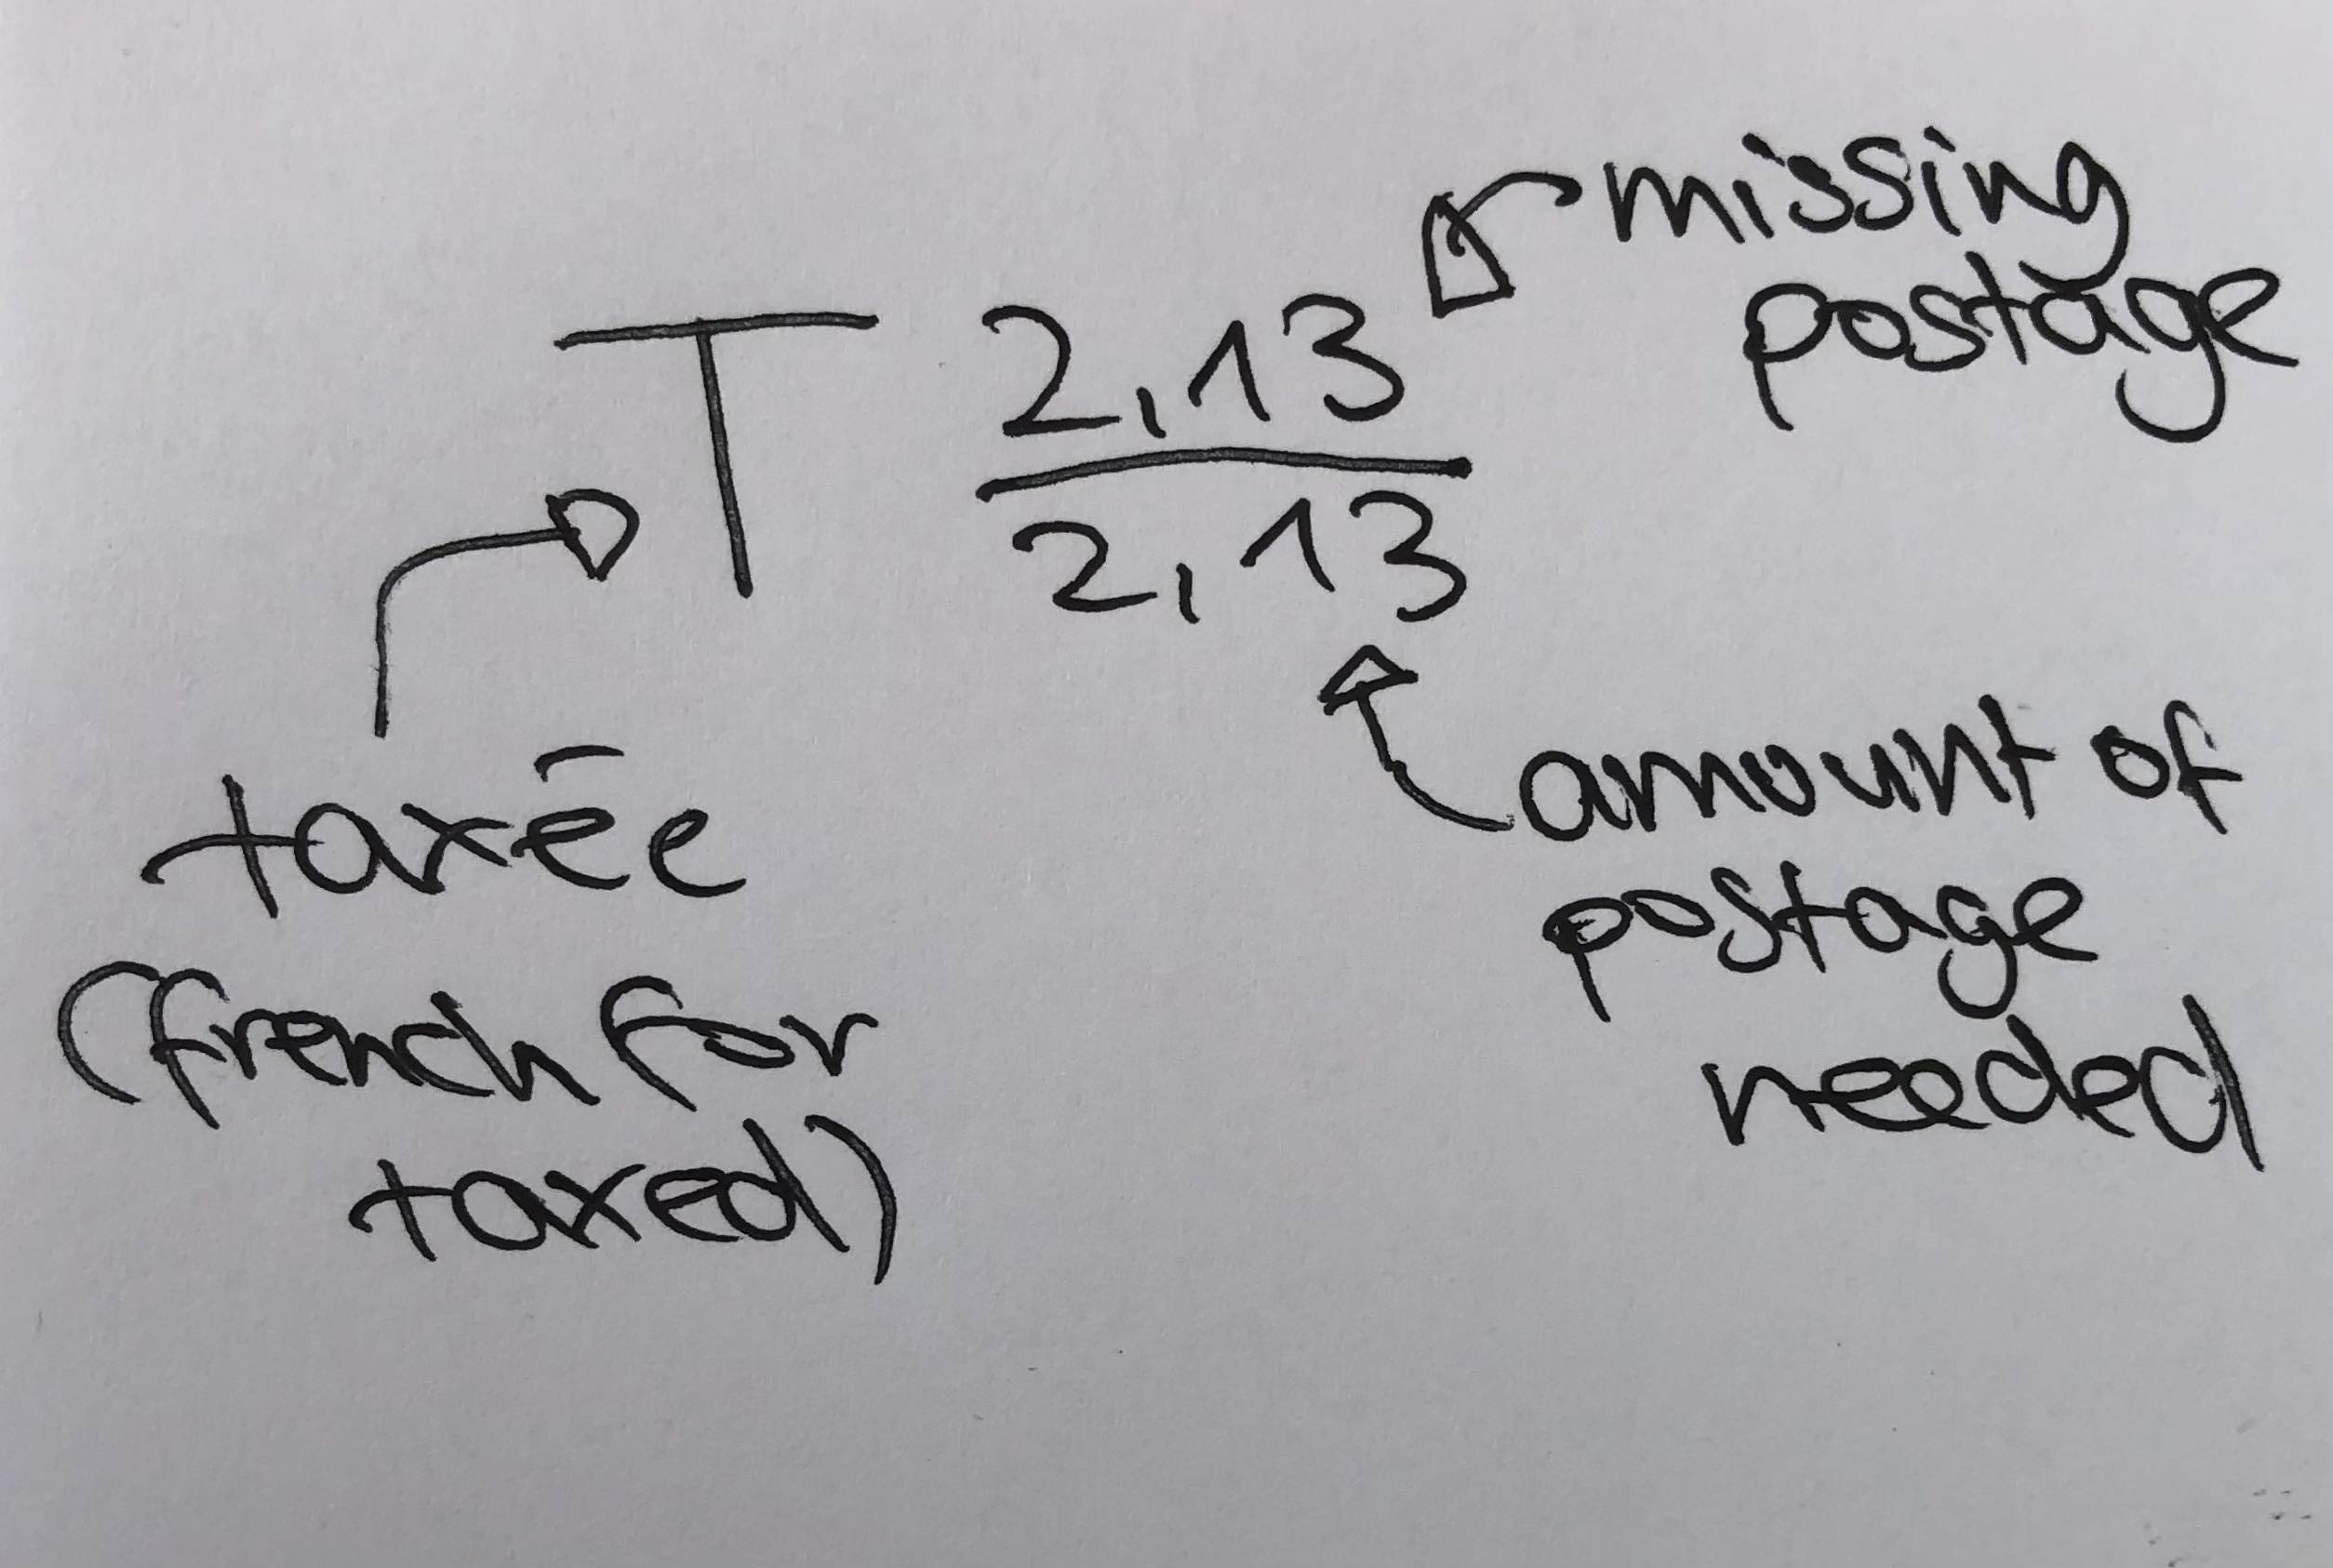 missing
postage
T 2,13
2,13
taxée
(french for
taxed)
amount of
postage
needed